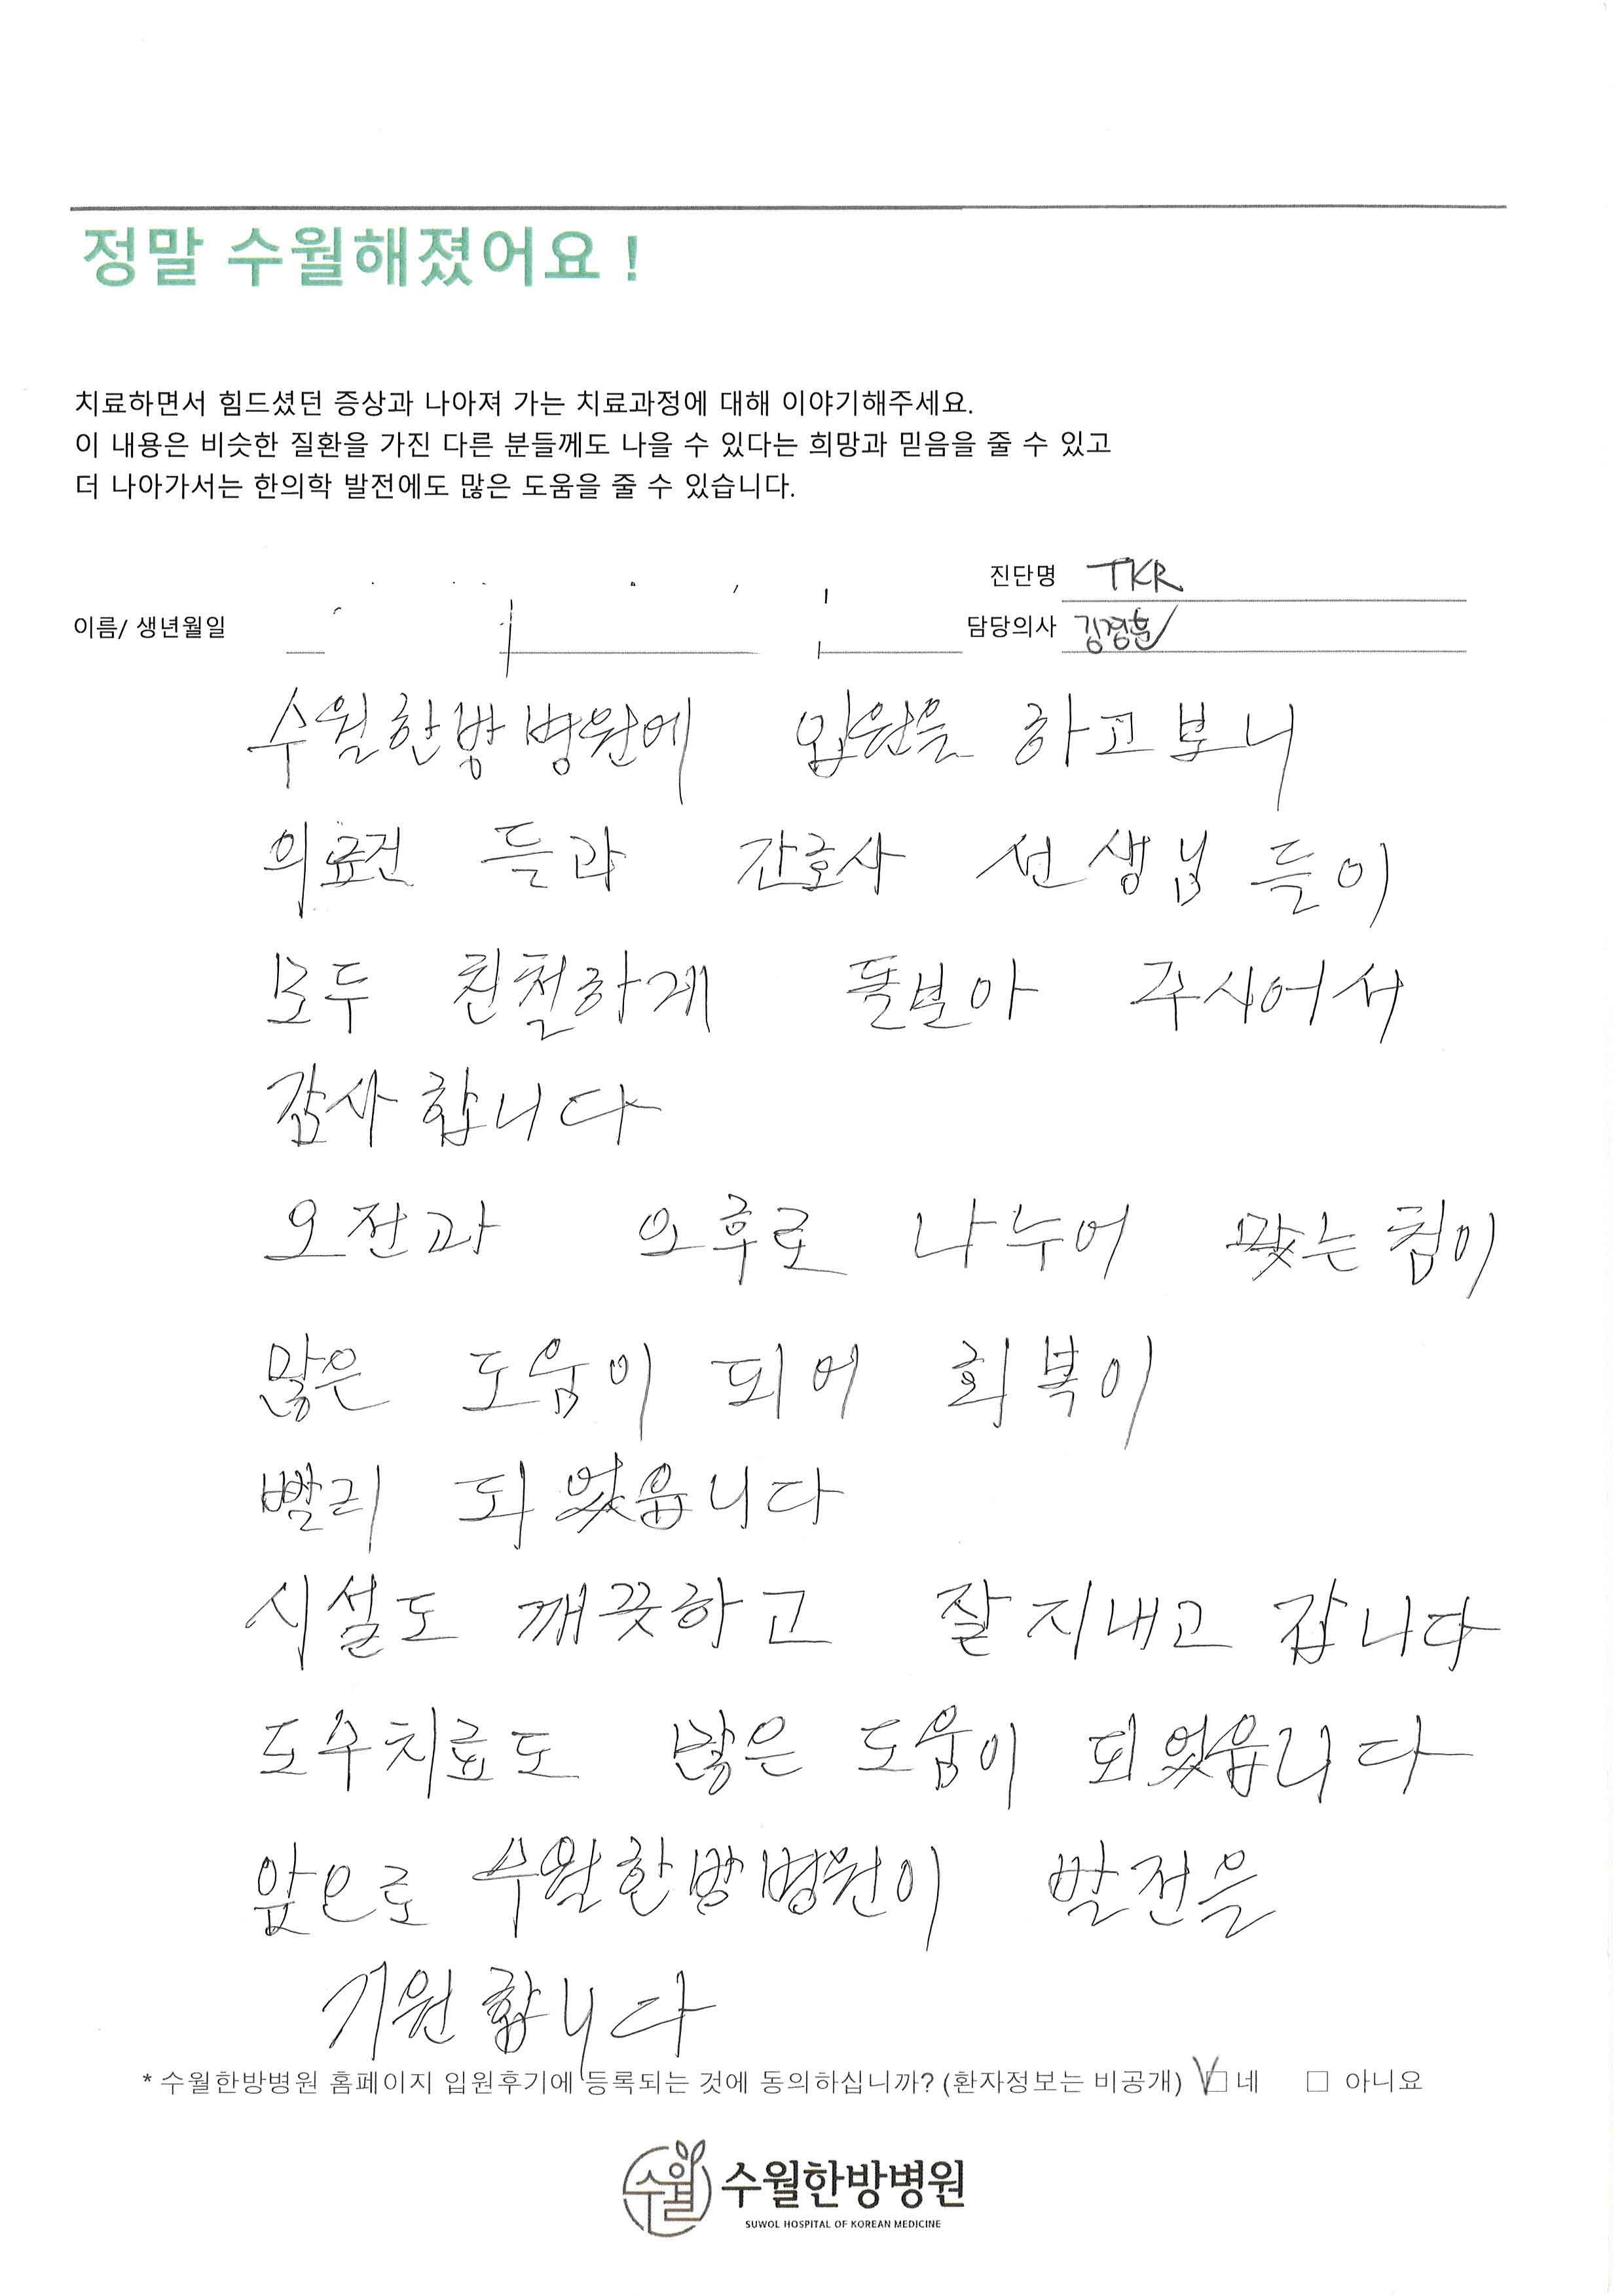 정말 수월해졌어요 !
치료하면서 힘드셨던 증상과 나아져 가는 치료과정에 대해 이야기해주세요.
이 내용은 비슷한 질환을 가진 다른 분들께도 나을 수 있다는 희망과 믿음을 줄 수 있고
더 나아가서는 한의학 발전에도 많은 도움을 줄 수 있습니다.
진단명 TKR
이름/ 생년월일 담당의사 김경훈
수월한방병원에 입원을 하고보니
의료건 들과 간호사 선생님 들이
모두 친철하게 돌보아 주시어서
감사합니다
오전과 오후로 나누어 맞는 침이
많은 도움이 되어 회복이
빨리 되었읍니다
시설도 깨끗하고 잘 지내고 갑니다
도수치료도 많은 도움이 되었읍니다
앞으로 수월한방병원이 발전을
기원합니다
* 수월한방병원 홈페이지 입원후기에 등록되는 것에 동의하십니까? (환자정보는 비공개) V□ 네 □ 아니요
수월 수월한방병원
SUWOL HOSPITAL OF KOREAN MEDICINE